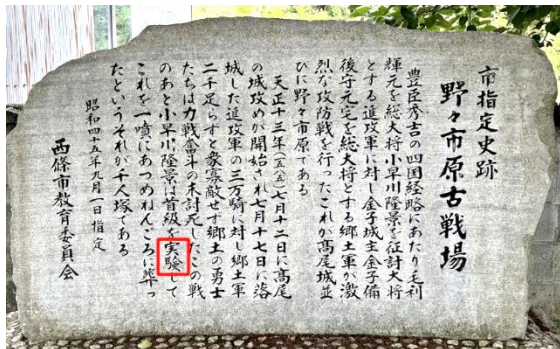 市指定史跡
野々市原古戦場
豊臣秀吉の四国経略にあたり毛利
輝元を総大将小早川隆景を征討大将
とする進攻軍に対し金子城主金子備
後守元宅を総大将とする郷土軍が激
烈な攻防戦を行ったこれが高尾城並
びに野々市原である
天正十三年(一五八五)七月十二日に高尾
の城攻めが開始され七月十七日に落
城した進攻軍の三万騎に対し郷土軍
二千足らずと衆寡敵せず郷土の勇士
たちは力戦奮斗の末討死したこの戦
のあと小早川隆景は首級を実験して
これを一墳にあつめねんごろに葬っ
たというそれが千人塚である
昭和四十五年九月一日指定
西條市教育委員会